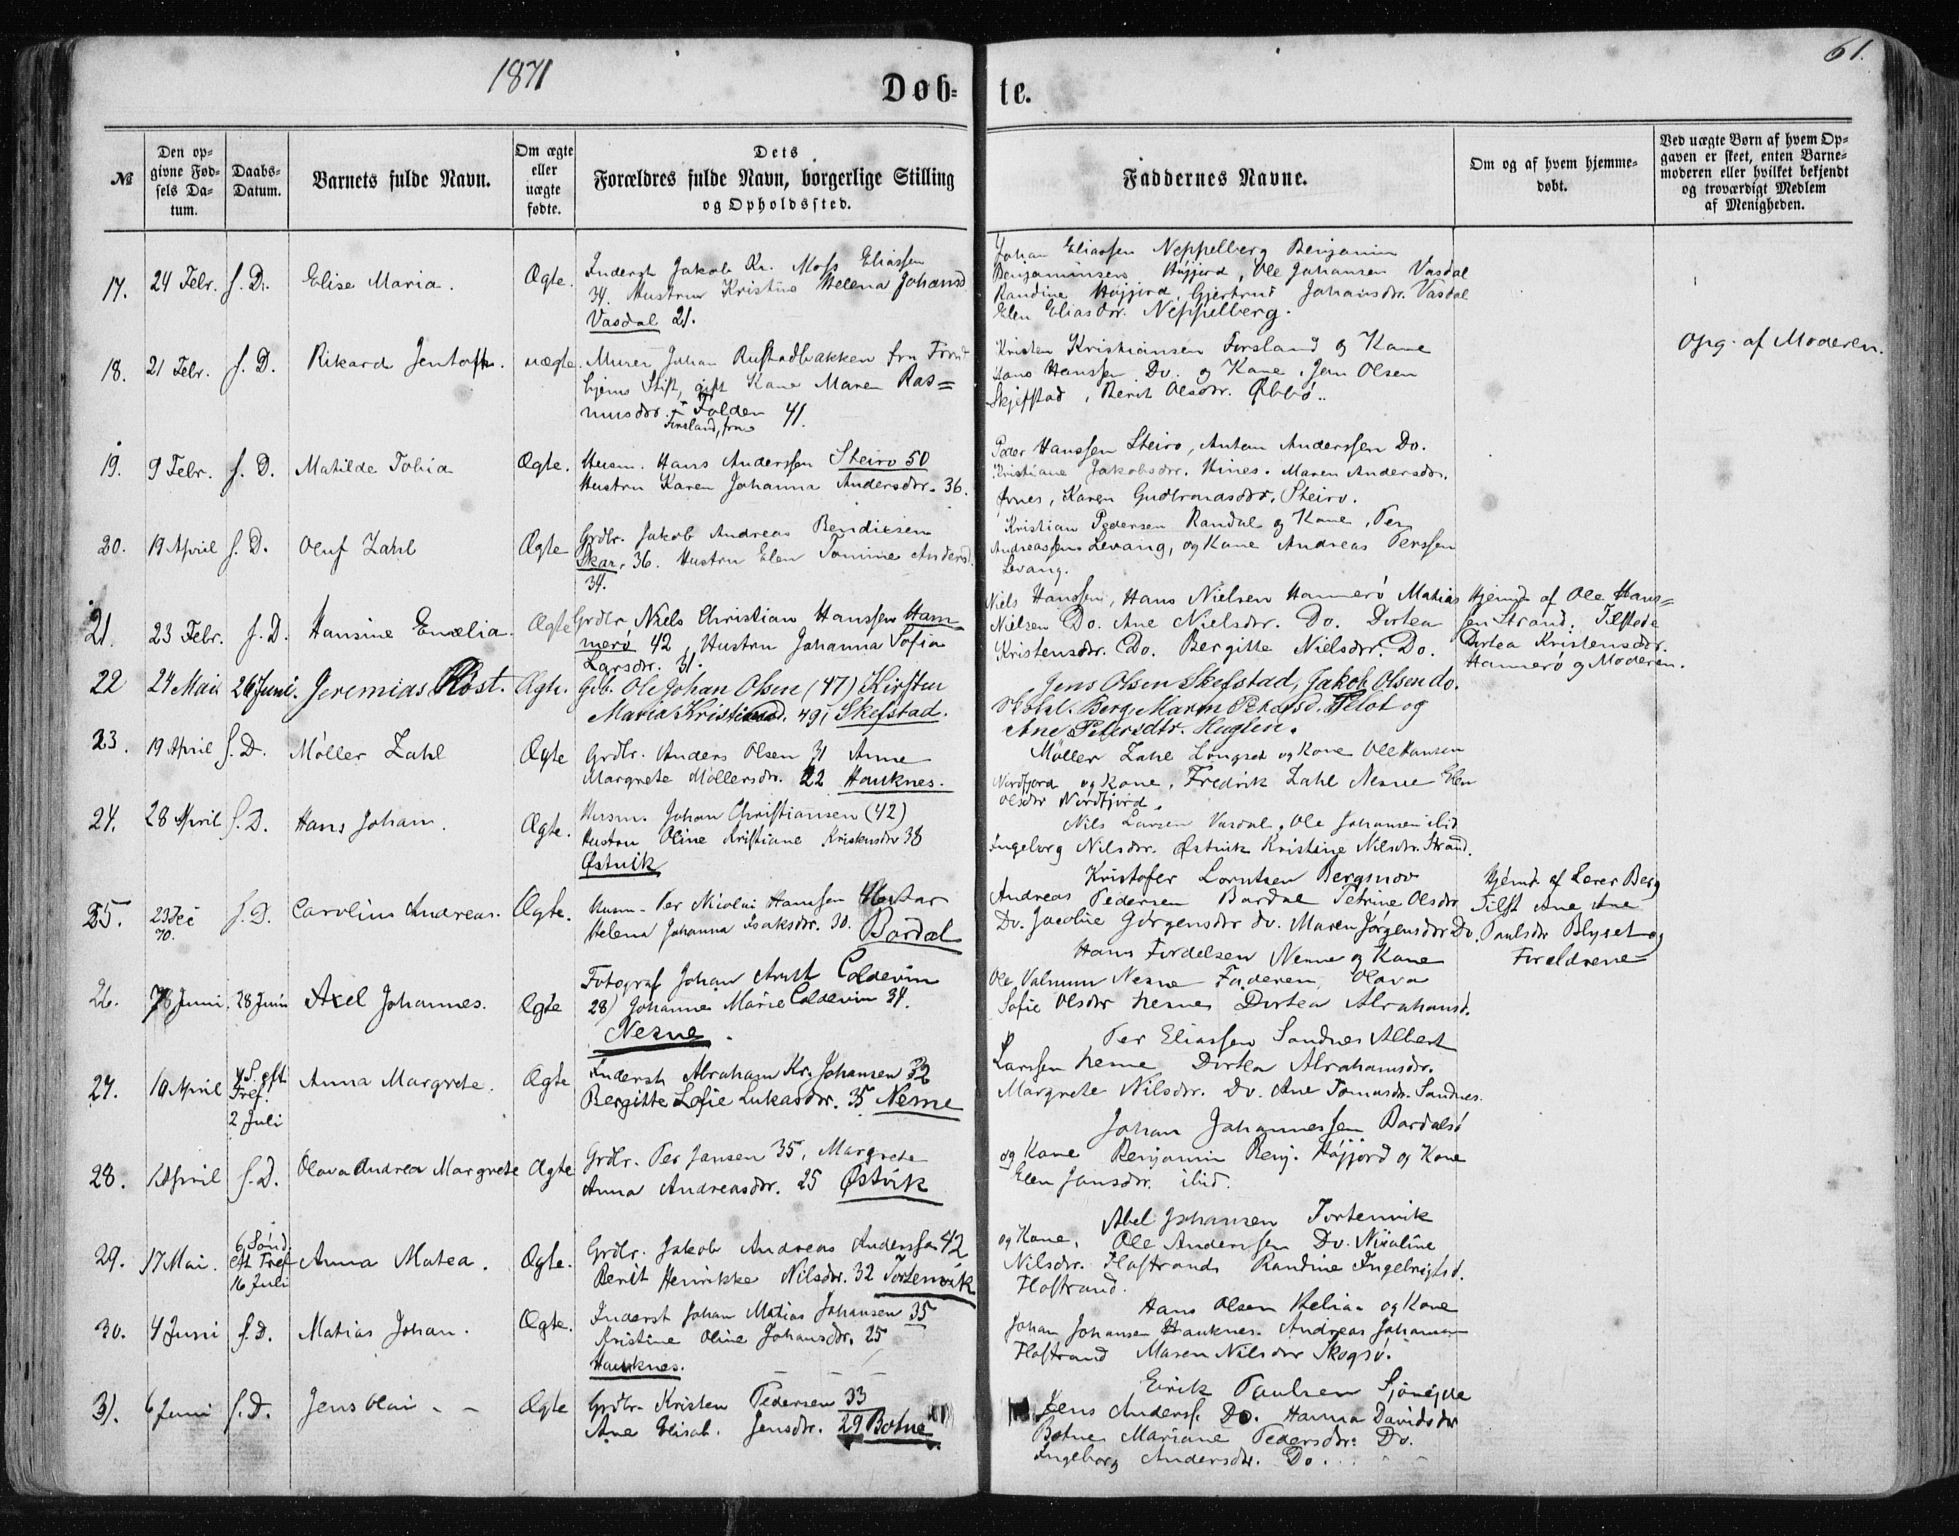 1871
61.
Døb-
te.
№
Den op-
givne Fød-
sels Da-
tum.
Daabs-
Datum.
Barnets fulde Navn.
Om ægte
eller
uægte
fødte.
Dets
Forældres fulde Navn, borgerlige Stilling
og Opholdssted.
Faddernes Navne.
Om og af hvem hjemme-
døbt.
Ved uægte Børn af hvem Op-
gaven er skeet, enten Barne-
moderen eller hvilket bekjendt
og troværdigt Medlem
af Menigheden.
17.
24 Febr.
s. D.
Elise Maria.
Ægte.
Inderst Jakob Kr. Moss Eliassen
34. Hustru Kristine Helena Johansd
Vasdal 21.
Johan Eliassen Neppelberg Benjamin
Benjaminsens Højjord, Ole Johansen Vasdal
Randine Højjord, Gjertrud Johansdr. Vasdal
Elen Eliasdr. Neppelberg.
18.
21 Febr.
s. D.
Rikard Jentoft.
uægte.
Murer Johan Rustadbakken fra Trond
hjems Stift, gift Kone Maren Ras=
musdr. i Folden 41.
Forsland, fra
Kristen Kristiansen Forsland og Kone
Hans Hanssen Do. og Kone, Jen Olsen
Skjefstad, Berit Olsdr. Øbbø.
Opg. af Moderen.
19.
9 Febr.
s. D.
Matilde Tobia
Ægte.
Husm. Hans Anderssen Steiro 50
Hustru Karen Johanna Andersdr. 36.
Peder Hanssen Steiro, Anton Anderssen Do.
Kristiane Jakobsdr. Hines. Maren Andersdr.
Ørnes, Karen Gudbrandsdr, Steiro.
20.
19 April
s. D.
Oluf Zahl
Ægte
Grdbr. Jakob Andreas Bendixsen
Skar, 36. Hustru Elen Tomine Andersd.
34.
Kristian Pedersen Randal og Kone, Per
Andreassens Levang, og Kone Andreas Perssen
Levang.
21.
23 Febr.
s. D.
Hansine Emelia.
Ægte
Grdbr Niels Christian Hanssen Ham-
merø 42 Hustru Johanna Sofia
Larsdr. 31.
Niels Hanssen, Hans Nielsen Hammerø Matias
Nielsen Do. Ane Nielsdr. Do. Dortea
Kristensdr. Do. Bergitte Nielsdr. Do.
Hjemd. af Ole Hans=
sen Strand. Tilstede
Dortea Kristensdr.
Hammerø og Moderen.
22
24 Mai
26 Juni.
Jeremias Rost.
Ægte.
Gdb. Ole Johan Olsen (47) Kirsten
Maria Kristiansd. 49, Skefstad.
Jens Olsen Skefstad, Jakob Olsen do.
Berg, Maren
Ane Petersdtr. Huglen.
23.
19 April
s. D.
Møller Zahl
Ægte
Grdbr. Anders Olsen 31 Anne
Margrete Møllersdr. 22 Hauknes.
Møller Zahl Longset og Kone Ole Hansen
Nordfjord og Kone, Fredrik Zahl Nesne Elen
Olsdr Nordfjord.
24.
28 April
s. D.
Hans Johan.
Ægte.
Husm. Johan Christiansen (42)
Hustru Oline Kristiane Kristensdr 38
Østvik
Nils Larsen Vasdal, Ole Johansen ibid
Ingeborg Nilsdr. Østvik Kristine Nilsdr. Strand.
25.
23 Dec
70.
s. D.
Carolius Andreas.
Ægte.
Husm. Per Nicolai Hanssen 46
Helena Johanna Isaksdr. 30. Bardal
Kristofer Lorntzen Bergsnov
Andreas Pedersen Bardal Petrine Olsdr
Do. Jacobine Jørgensdr do. Maren Jørgensdr Do.
Hjemd. af Lærer Berg
Tilst Ane Ane
Paulsdr Blyset og
Forældrene
26.
78 Juni.
28 Juni
Axel Johannes.
Ægte
Fotograf Johan Arntt Coldevin
28) Johanne Marie Coldevin 34.
Nesne.
Hans Fordelsen Nesne og Kone
Ole Valnum Nesne Faderen, Olava
Sofie Olsdr Nesne Dortea Abrahamsd.
27.
19 April
4 S. eft
Tref.
2 Juli
Anna Margrete.
Ægte
Inderst Abraham Kr. Johansen 32
Bergitte Sofie Lukasdr. 35 Nesne
Per Eliassen Sandnes Albert
Larssen Nesne Dortea Abrahamsdr.
Margrete Nilsdr. Do. Ane Tomasdr. Sandnes.
28.
1 April
s. D.
Olava Andrea Margrete
Ægte
Grdbr. Per Jansen 35, Margrete
Anna Andreasdr. 25 Østvik
Johan Johannessen Bardalsø
og Kone Benjamin Benj. Højjord og Kone
Elen Jansdr. ibid.
29.
17 Mai.
6 Sønd
eft Tref
16 Juli
Anna Matea.
Ægte.
Grdbr. Jakob Andreas Anderssen 42
Berit Henrikke Nilsdr. 32 Tortenvik
Abel Johansen Tortenvik
og Kone, Ole Anderssen Do. Nicoline
Nilsdr. Flostrand Randine Ingebrigtsd.
Flostrand.
30.
4 Juni
s. D.
Matias Johan.
Ægte.
Inderst Johan Matias Johansen 35
Kristine Oline Johansdr. 25
Hauknes.
Hans Olsen og Kone
Johan Johansen Hauknes. Andreas Johansen
Flostrand Maren Nilsdr Skogsø.
31.
6 Juni
s. D.
Jens Olai - -
Ægte
Grdbr. Kristen Pedersen 33
Ane Elisab. Jensdr. 29 Botne
Eirik Paulsen Sjønøjde
Jens Anderss. Do. Hanna Davidsdr
Botne Mariane Pedersdr. Do.
Ingeborg Andersdr. Do.